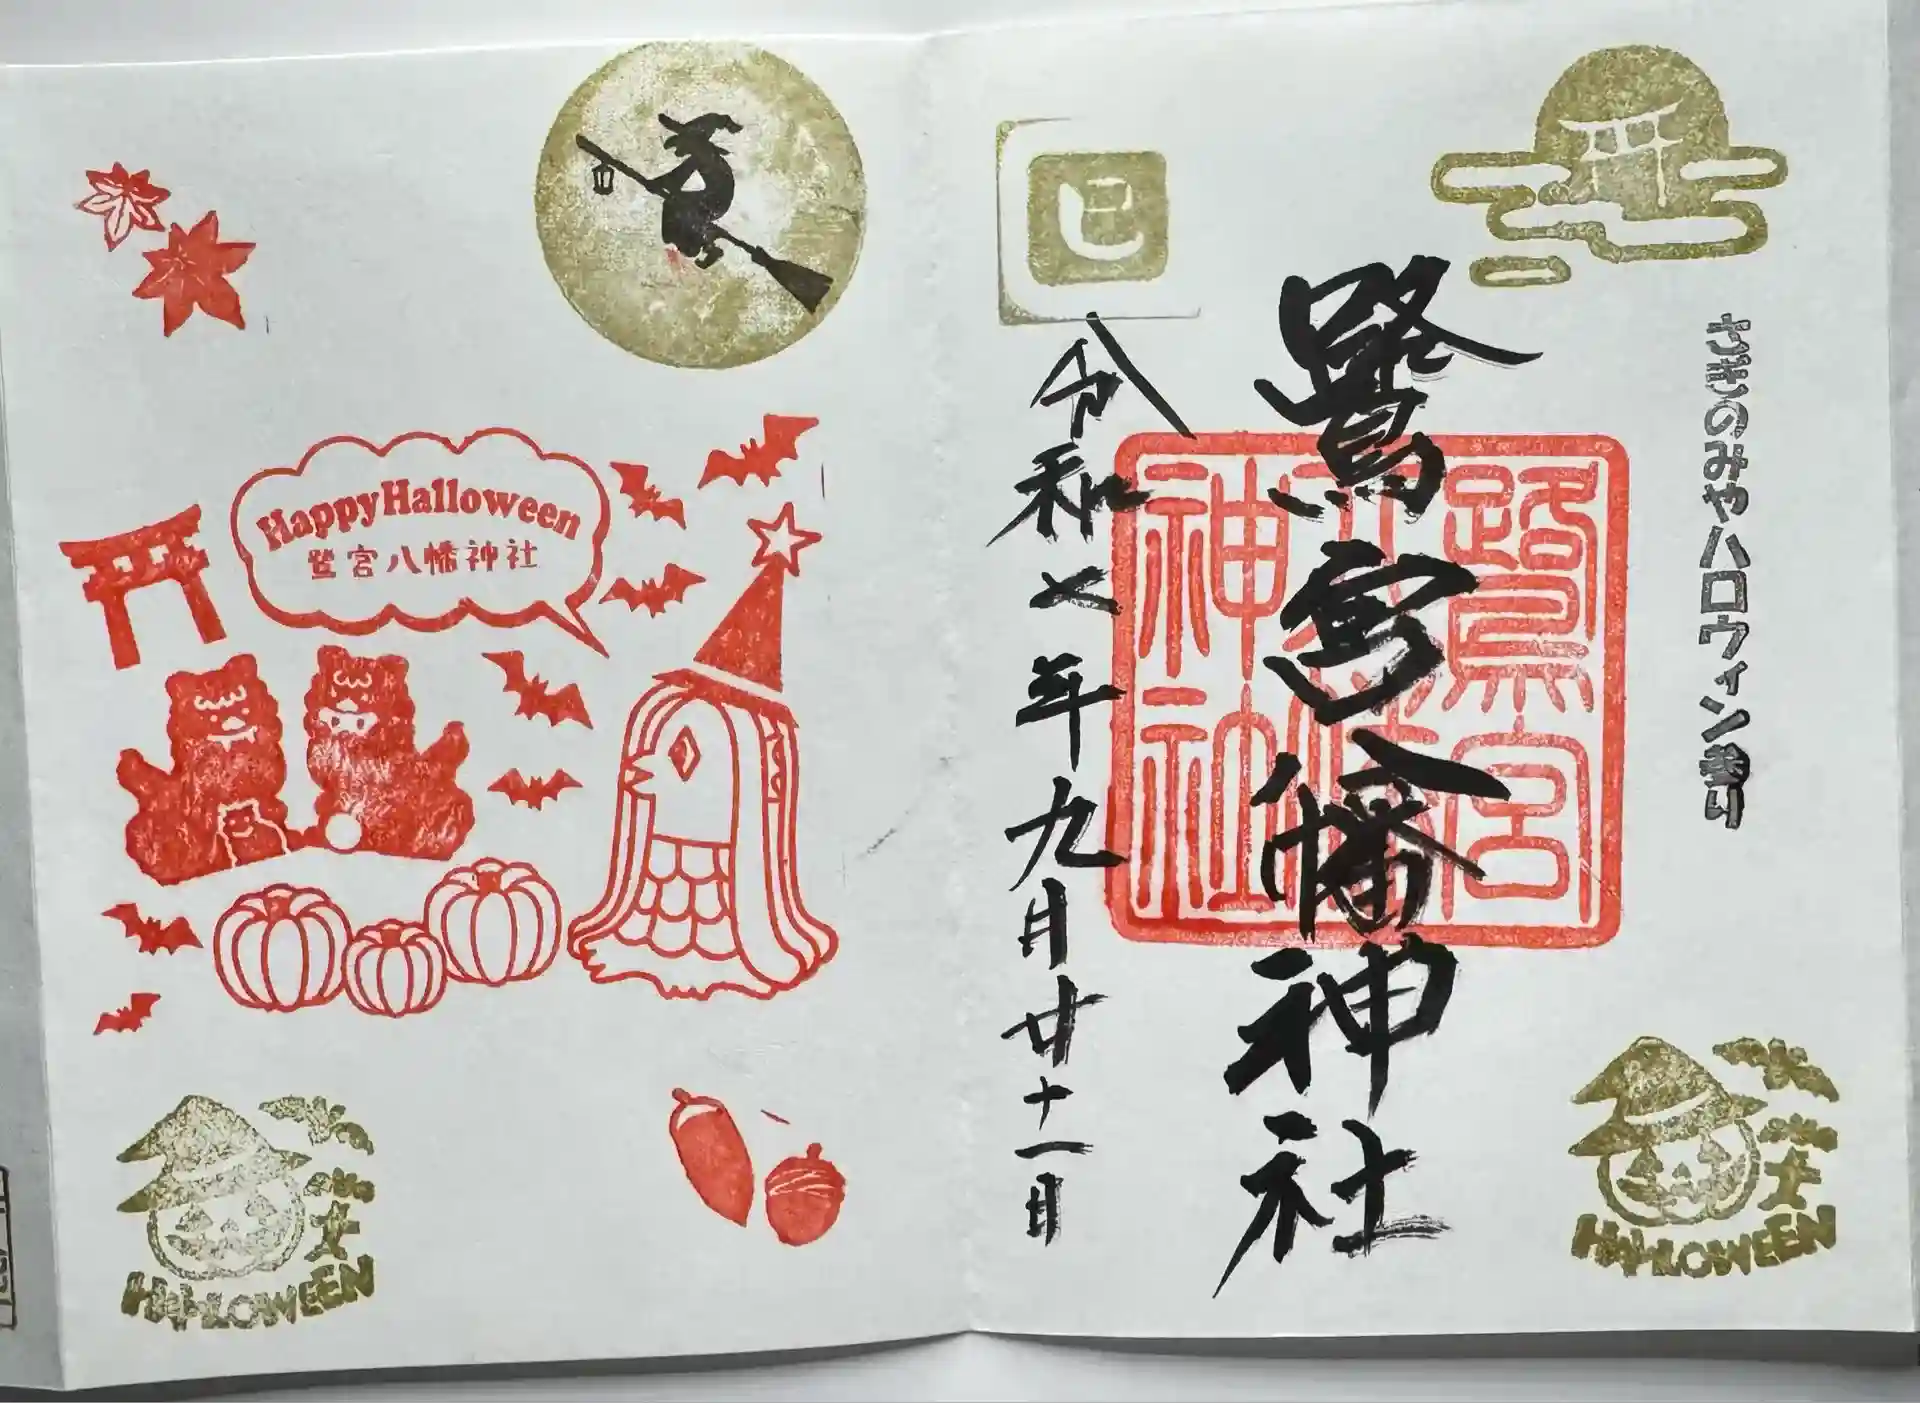 さぎのみやハロウィン参り
鷺宮八幡神社
鷺宮八幡神社
巳
令和七年九月廿十一日
HALLOWEEN
HappyHalloween
鷺宮八幡神社
HALLOWEEN